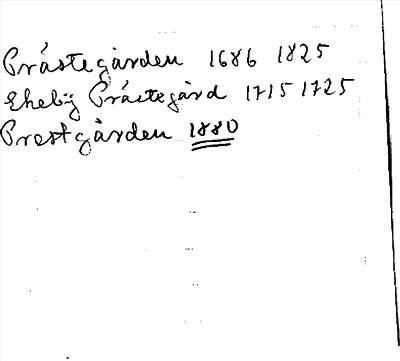 Prästegården 1686 1825
Ekeby Prästegård 1715 1725
Prestgården 1880